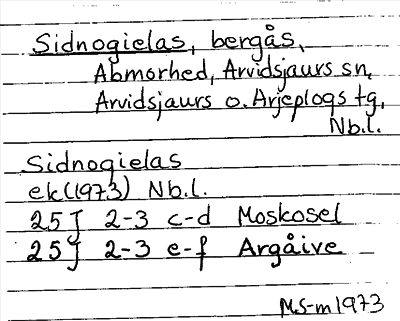 Sidnogielas, bergås,
Abmorhed, Arvidsjaurs sn,
Arvidsjaurs o. Arjeplogs tg,
Nb.l.
Sidnogielas
ek(1973) Nb.l.
25J 2-3 c-d Moskosel
25J 2-3 e-f Argåive
MS-m 1973